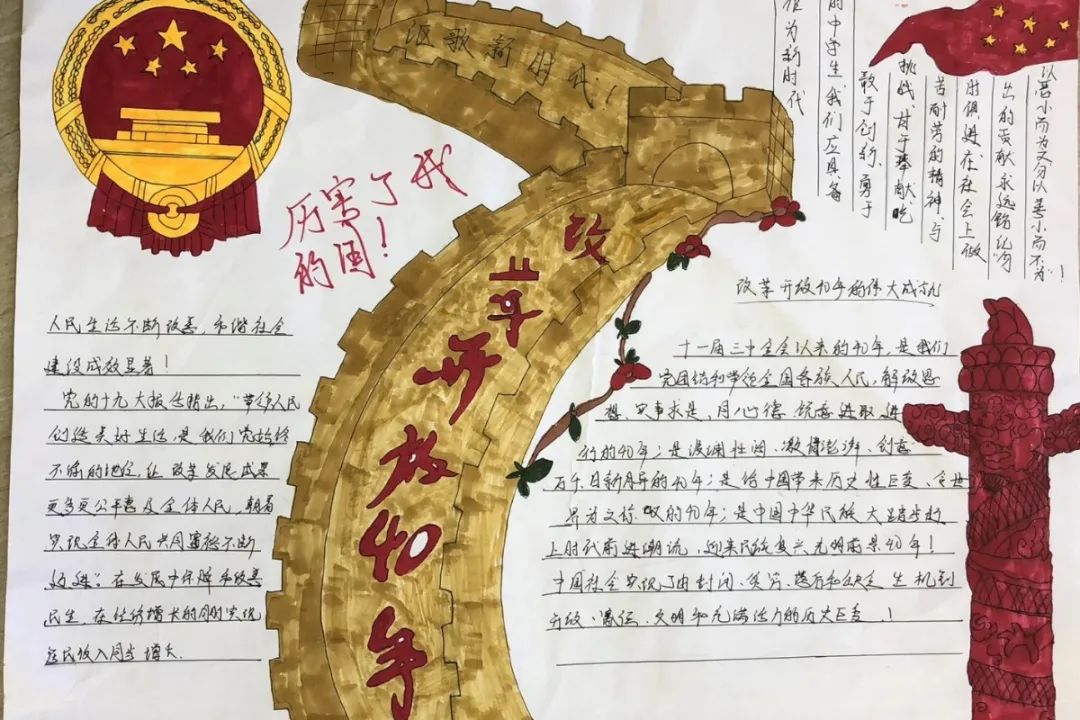 讴歌新时代!
厉害了我
的国!
改革开放40年
作为新时代
的中学生我们应具备
敢于创新、勇于
挑战、甘于奉献、吃
苦耐劳的精神、与
时俱进、在社会上做
出的贡献永远
以恶小而为之勿以善小而不为!
人民生活不断改善，和谐社会
建设成效显著!
党的十九大报告指出，“带领人民
创造美好生活，是我们党始终
不渝的
让改革发展成果
更多更公平惠及全体人民，朝着
实现全体人民共同富裕不断
在发展中保障和改善
民生，在经济增长的同时实现
居民收入同步增长.
改革开放40年的伟大成就
十一届三中全会以来的40年，是我们
党团结和带领全国各族人民，解放思
想、实事求是、同心德、锐意进取进
行的40年；是波澜壮阔、激情澎湃、创意
万千、日新月异的40年；是给中国带来历史性巨变、令世
界为之惊叹的40年；是中国中华民族大踏步赶
上时代前进潮流、迎来民族复兴光明前景40年!
中国社会实现了由封闭、贫穷、落后和缺乏生机到
开放、富强、文明和充满活力的历史巨变!